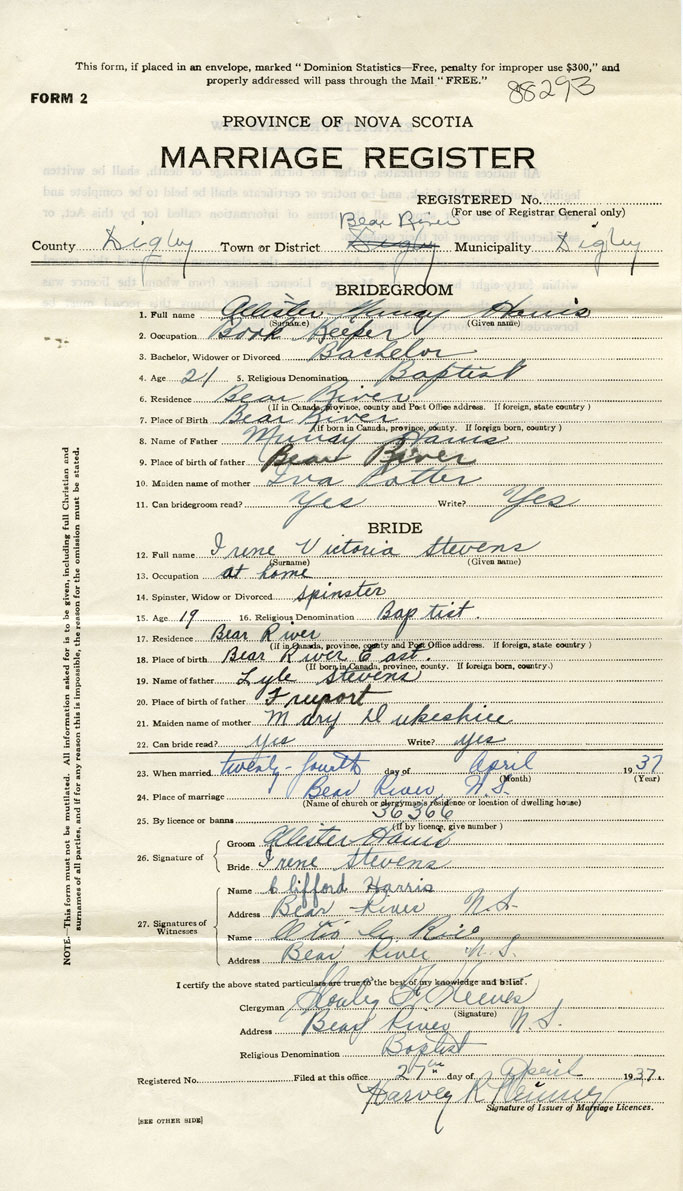 This form, if placed in an envelope, marked "Dominion Statistics—Free, penalty for improper use $300," and
properly addressed will pass through the Mail "FREE."
88293
FORM 2
PROVINCE OF NOVA SCOTIA
MARRIAGE REGISTER
REGISTERED No.
(For use of Registrar General only)
Bear River
County Digby Town or District Digby Municipality Digby
BRIDEGROOM
1. Full name Allister Murray Harris
(Surname) (Given name)
2. Occupation Book Keeper
3. Bachelor, Widower or Divorced Bachelor
4. Age 21 5. Religious Denomination Baptist
6. Residence Bear River
(If in Canada, province, county and Post Office address. If foreign, state country )
7. Place of Birth Bear River
(If born in Canada, province, county. If foreign born, country )
8. Name of Father Murray Harris
9. Place of birth of father Bear River
10. Maiden name of mother Iva Potter
11. Can bridegroom read? Yes Write? Yes
BRIDE
12. Full name Irene Victoria Stevens
(Surname) (Given name)
13. Occupation at home
14. Spinster, Widow or Divorced spinster
15. Age 19 16. Religious Denomination Baptist.
17. Residence Bear River
(If in Canada, province, county and Post Office address. If foreign, state country )
18. Place of birth Bear River East.
(If born in Canada, province, county. If foreign born, country.)
19. Name of father Lyle Stevens
20. Place of birth of father Freeport
21. Maiden name of mother Mary Dukeshire
22. Can bride read? yes Write? yes
23. When married twenty-fourth day of April 1937
(Month) (Year)
24. Place of marriage Bear River N.S.
(Name of church or clergyman's residence or location of dwelling house)
25. By licence or banns 36366
(If by licence, give number )
26. Signature of
Groom Allister Harris
Bride Irene Stevens
27. Signatures of Witnesses
Name Clifford Harris
Address Bear River N.S.
Name Rice
Address Bear River N.S.
I certify the above stated particulars are true to the best of my knowledge and belief.
Clergyman
(Signature)
Address Bear River N.S.
Religious Denomination Baptist
Registered No. Filed at this office 27th day of April 1937.
Harvey R
Signature of Issuer of Marriage Licences.
[SEE OTHER SIDE]
NOTE—This form must not be mutilated. All information asked for is to be given, including full Christian and
surnames of all parties, and if for any reason this is impossible, the reason for the omission must be stated.